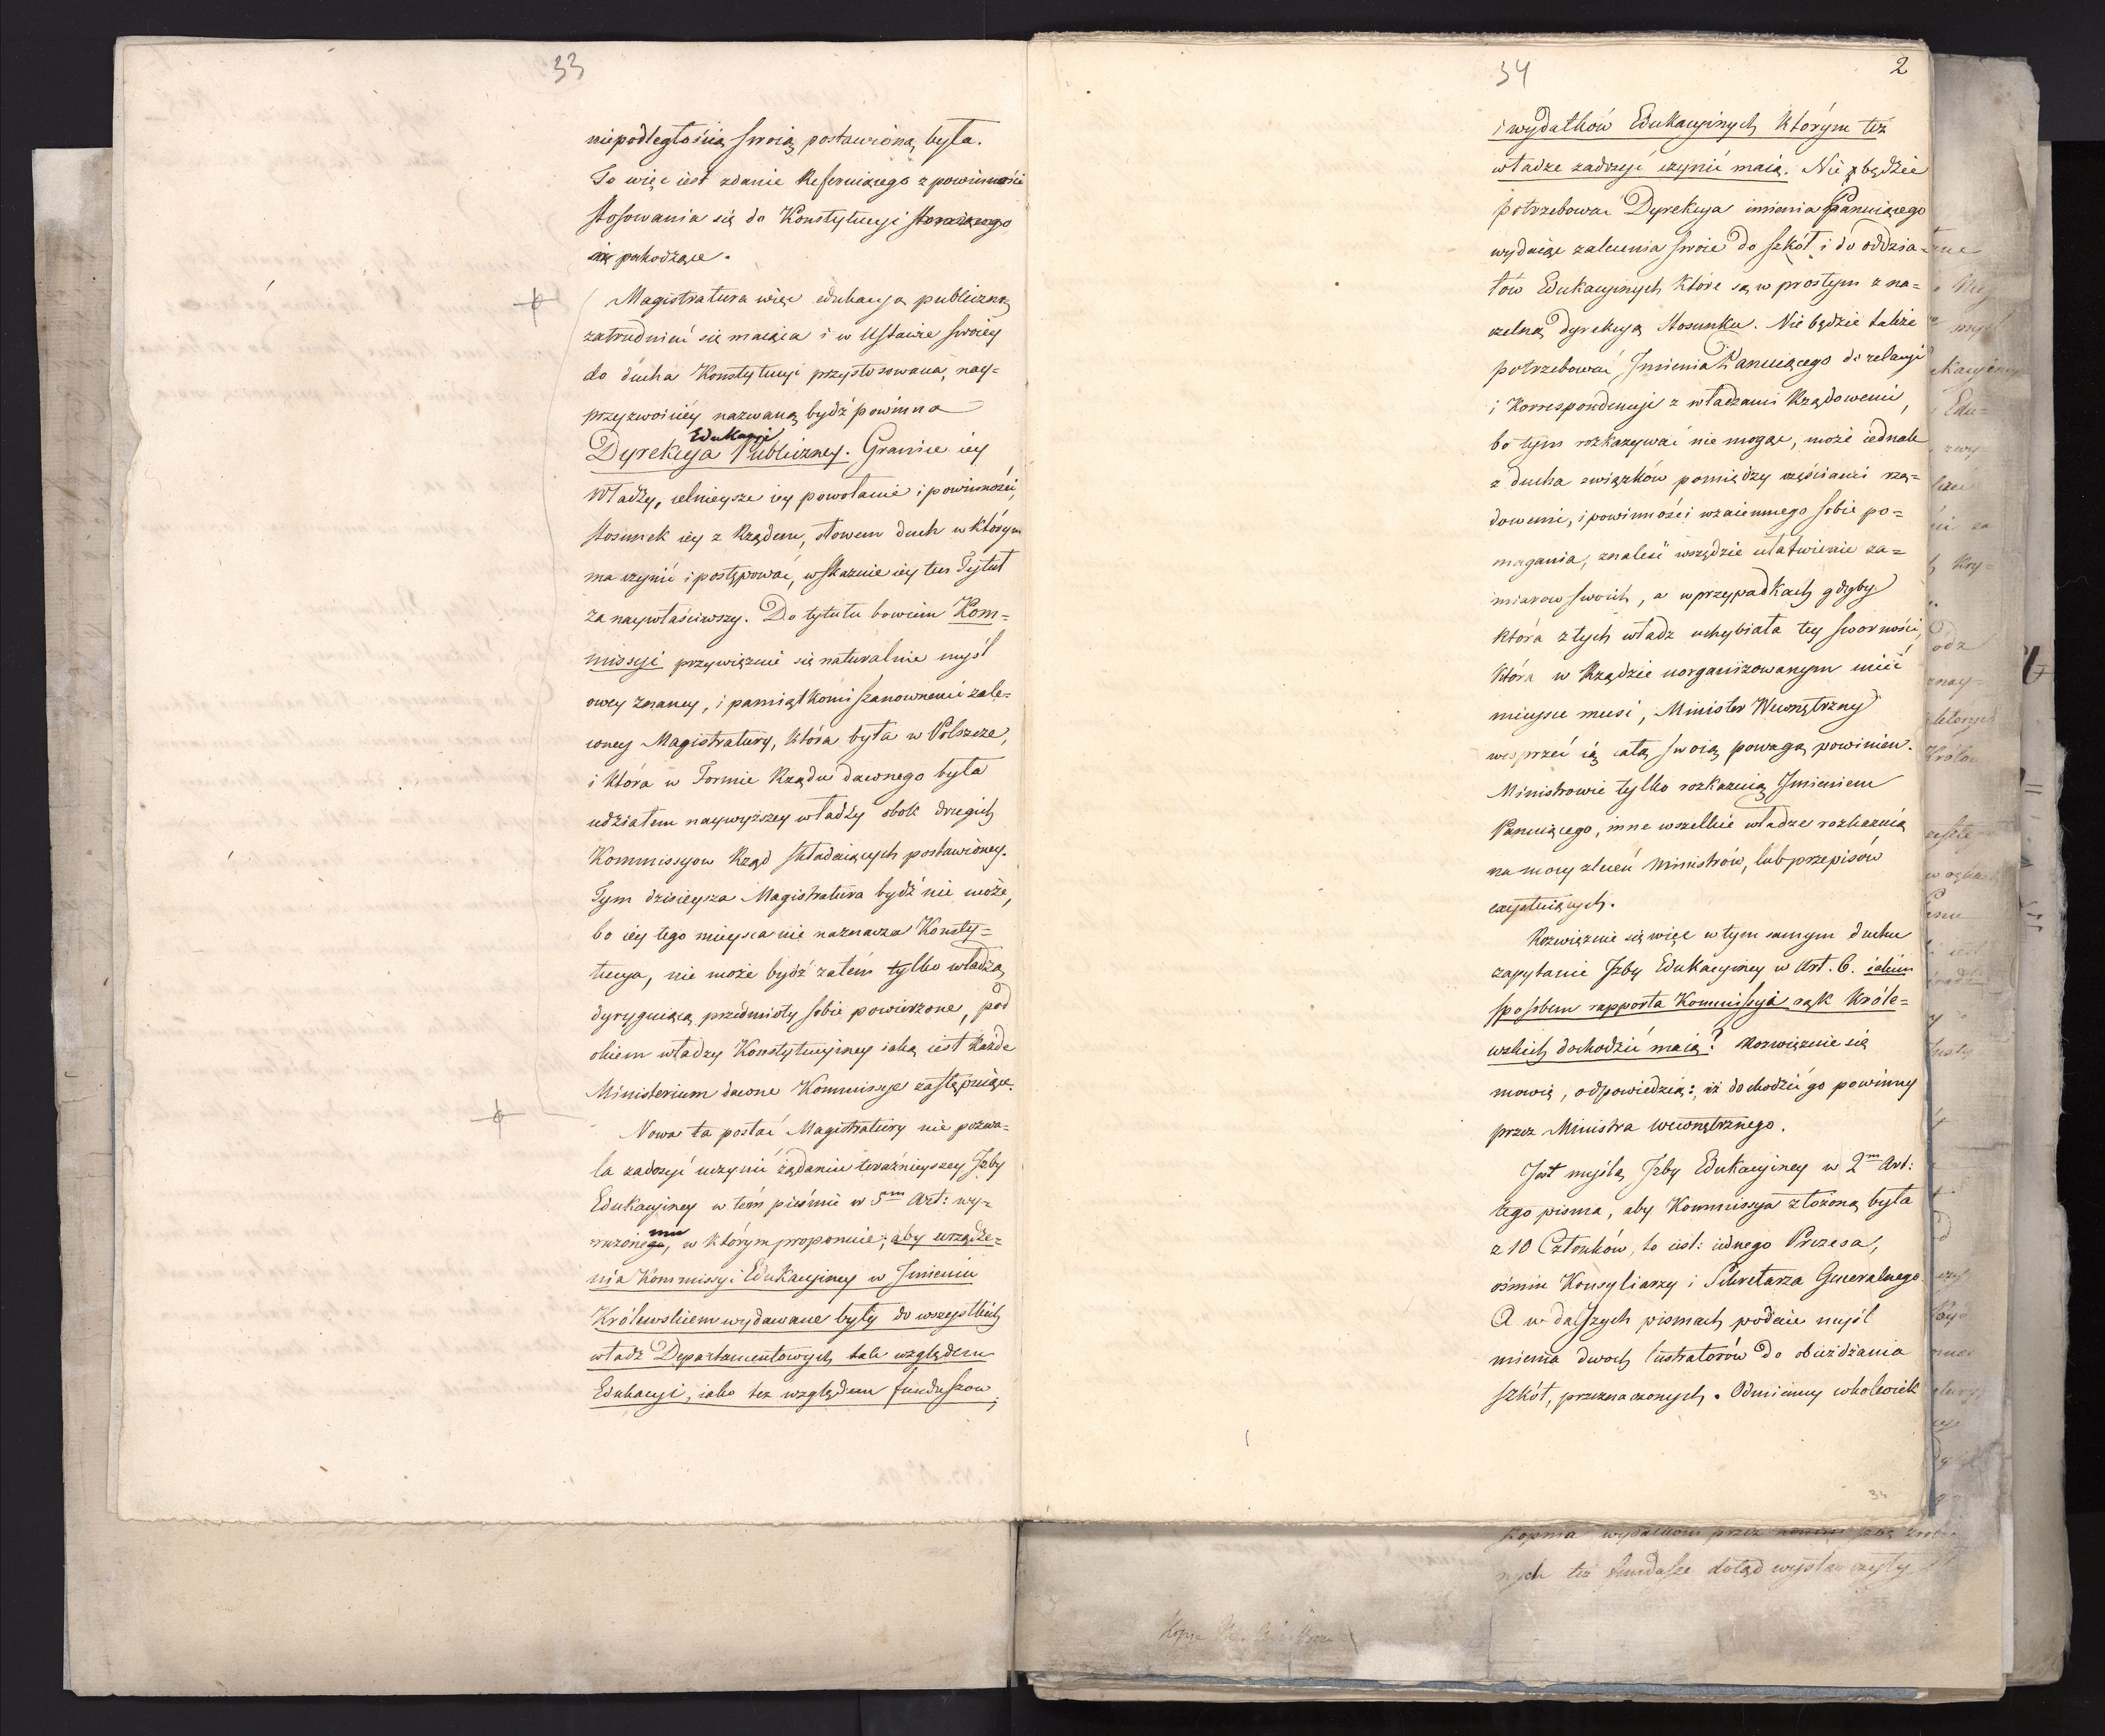 33
niepodległością swoią postawioną była.
To więc iest zdanie Referuiącego z powinności
stosowania się do Konstytucyi
pochodzące.
Magistratura więc edukacyą publiczną
zatrudnieć się maiąca i w Ustawie swoiey
do ducha Konstytucyi przystosowana, nay=
przyzwoiciey nazwaną bydź powinna
Edukacyi
Dyrekcya Publiczney. Granice iey
Władzy, celnieysze iey powołanie i powinności,
stosunek iey z Rządem, słowem duch w którym
ma czynić i postępować, wskazuie iey ten Tytuł
za naywłaściwszy. Do tytułu bowiem Kom=
missyi przywiązuie się naturalnie myśl
owey znaney, i pamiątkami szanownemi zale=
coney Magistratury, która była w Polszcze,
i która w Formie Rządu dawnego była
udziałem naywyższey władzy obok drugich
Kommissyow Rząd składaiących postawioney.
Tym dzisieysza Magistratura bydź nie może,
bo iey tego mieysca nie naznacza Konsty=
tucya, nie może bydź zatém tylko władzą
dyryguiącą przedmioty sobie powierzone, pod
okiem władzy Konstytucyiney iaką iest każde
Ministerium dawne Kommissye zastępuiące.
Nowa ta postać Magistratury nie pozwa=
la zadosyć uczynić żądaniu teraźnieyszey Izby
Edukacyiney w tém piśmie w 5m Art: wy=
mu
rażonego, w którym proponuie; aby urządze=
nia Kommissyi Edukacyiney w Imieniu
Królewskiem wydawane były do wszystkich
władz Departamentowych tak względem
Edukacyi, iako też względem funduszow,
34
2
i wydatków Edukacyinych którym też
władze zadosyć czynić maią. Nie będzie
potrzebować Dyrekcya imienia Panuiącego
wydaiąc zalecenia swoie do szkół i do oddzia=
łów Edukacyinych które są w prostym z na=
czelną dyrekcyą stosunku. Nie będzie także
potrzebować Imienia Panuiącego do relacyi
i Korrespondencyi z władzami Rządowemi,
bo tym rozkazywać nie mogąc, może iednak
z ducha związków pomiędzy częściami rzą=
dowemi, i powinności wzaiemnego sobie po=
magania, znaleść wszędzie ułatwienie za=
miarow swoich, a w przypadkach gdyby
która z tych władz uchybiała tey sworności,
która w Rządzie uorganizowanym mieć
mieysce musi, Minister Wewnętrzny
wesprzeć ią całą swoią powagą powinien.
Ministrowie tylko rozkazuią Imieniem
Panuiącego, inne wszelkie władze rozkazuią
na mocy zleceń Ministrów, lub przepisów
exystuiących.
Rozwiązuie się więc w tym samym duchu
zapytanie Izby Edukacyiney w Art. 6. iakim
sposobem rapporta Kommissyi rąk Króle=
wskich dochodzić maią? Rozwiązuie się
mowię, odpowiedzią: iż dochodzić go powinny
przez Ministra Wewnętrznego.
Jest myślą Izby Edukacyiney w 2m Art:
tego pisma, aby Kommissya złożoną była
z 10 Członków, to iest: iednego Prezesa,
ośmiu Konsyliarzy i Sekretarza Generalnego.
A w dalszych pismach podaie myśl
miema dwoch lustratorów do obieżdżania
szkół, przeznaczonych. Odmienny wkolwiek
nych też fundusze dotąd wystarczyły